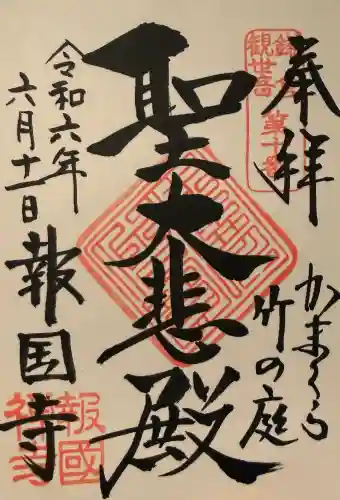 奉拝
鎌倉
観世音
第十番
かまくら
竹の庭
聖大悲殿
令和六年
六月十一日
報国寺
報國